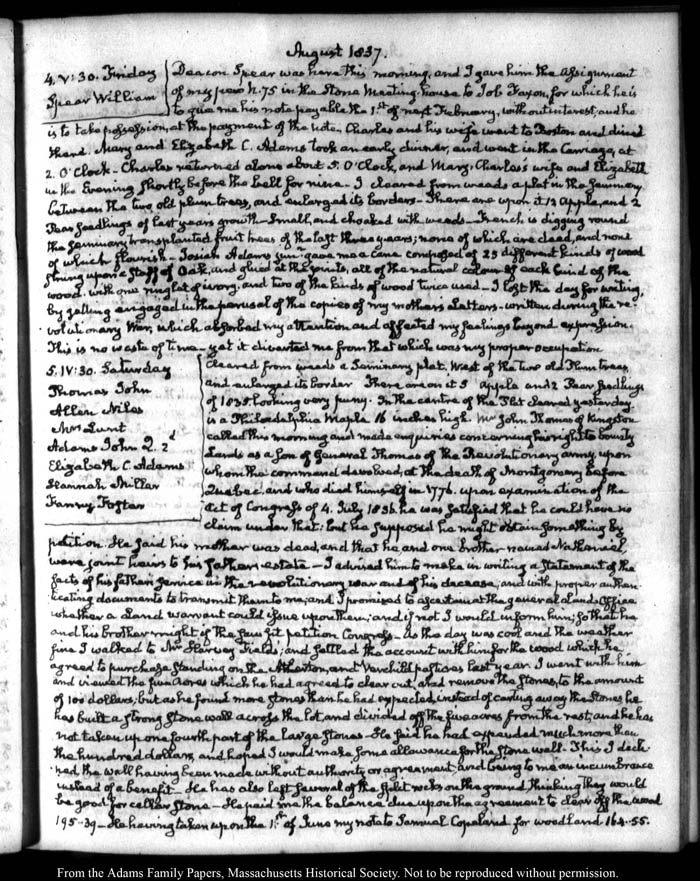 August 1837.
4. V: 30. Friday
Spear William
Deacon Spear was here this morning, and I gave him the Assignment
of my pew N. 75 in the Stone Meeting-house to Job Faxon, for which he is
to give me his note payable the 1.st of next February, without interest; and he
is to take possession, at the payment of the note. Charles and his wife went to Boston and dined
there. Mary and Elizabeth C. Adams took an early dinner, and went in the Carriage, at
2. O'Clock - Charles returned alone about 5. O'Clock, and Mary, Charles's wife and Elizabeth
in the Evening shortly before the bell for nine - I cleared from weeds a plat in the Seminary
between the two old plum trees, and enlarged its borders - There are upon it 13 Apple, and 2
Pear seedlings of last years growth - Small, and choaked with weeds - French is digging round
the Seminary transplanted fruit trees of the last three years; none of which are dead, and none
of which flourish - Josiah Adams junr. gave me a Cane composed of 25 different kinds of wood
strung upon a staff of Oak, and glued at the joints, all of the natural colour of each kind of the
wood. with one ringlet of ivory, and two of the kinds of wood twice used - I lost the day for writing,
by getting engaged in the perusal of the copies of my mother's Letters - written during the re-
volutionary War, which absorbed my attention and affected my feelings beyond expression.
This is no waste of time - yet it diverted me from that which was my proper occupation.
5. IV: 30. Saturday
Thomas John
Allen Niles
Mrs Lunt
Adams John Q. 2d
Elizabeth C. Adams
Hannah Miller
Fanny Foster
Cleared from weeds a Seminary plat, West of the two old Plum trees,
and enlarged its border There are on it 5 Apple and 2 Pear seedlings
of 1835. looking very puny. In the centre of the Plat cleared yesterday
is a Philadelphia Maple 16 inches high. Mr John Thomas of Kingston
called this morning and made enquiries concerning his right to bounty
Lands as a Son of General Thomas of the Revolutionary army, upon
whom the command devolved, at the death of Montgomery before
Quebec, and who died himself in 1776. upon examination of the
Act of Congress of 4. July 1836 he was satisfied that he could have no
claim under that; but he supposed he might obtain something by
petition. He said his mother was dead, and that he and one brother named Nathaniel,
were joint heirs to his father's estate - I advised him to make in writing a Statement of the
facts of his father's service in the revolutionary war and of his decease, and with proper authen-
ticating documents to transmit them to me, and I promised to ascertain at the general Land Office
whether a Land warrant could issue upon them; and if not I would inform him; so that he
and his brother might if they saw fit petition Congress - As the day was cool and the weather
fine I walked to Mr Harvey Fields; and settled the account with him for the wood which he
agreed to purchase standing on the Atherton, and Verchild pastures last year. I went with him
and viewed the five acres which he had agreed to clear out, and remove the Stones, to the amount
of 100 dollars; but as he found more stones than he had expected, instead of carting away the stones he
has built a strong Stone wall across the lot and divided off the five acres from the rest; and he has
not taken up one fourth part of the large Stones - He said he had expended much more than
the hundred dollars, and hoped I would make some allowance for the Stone wall - This I decli-
ned the wall having been made without authority or agreement, and being to me an incumbrance
instead of a benefit - He has also left several of the split rocks on the ground thinking they would
be good for cellar stone - He paid me the balance due upon the agreement to clear off the wood
195..39 - He having taken up on the 1.st of June my note to Samuel Copeland for woodland 164..55.
From the Adams Family Papers, Massachusetts Historical Society. Not to be reproduced without permission.